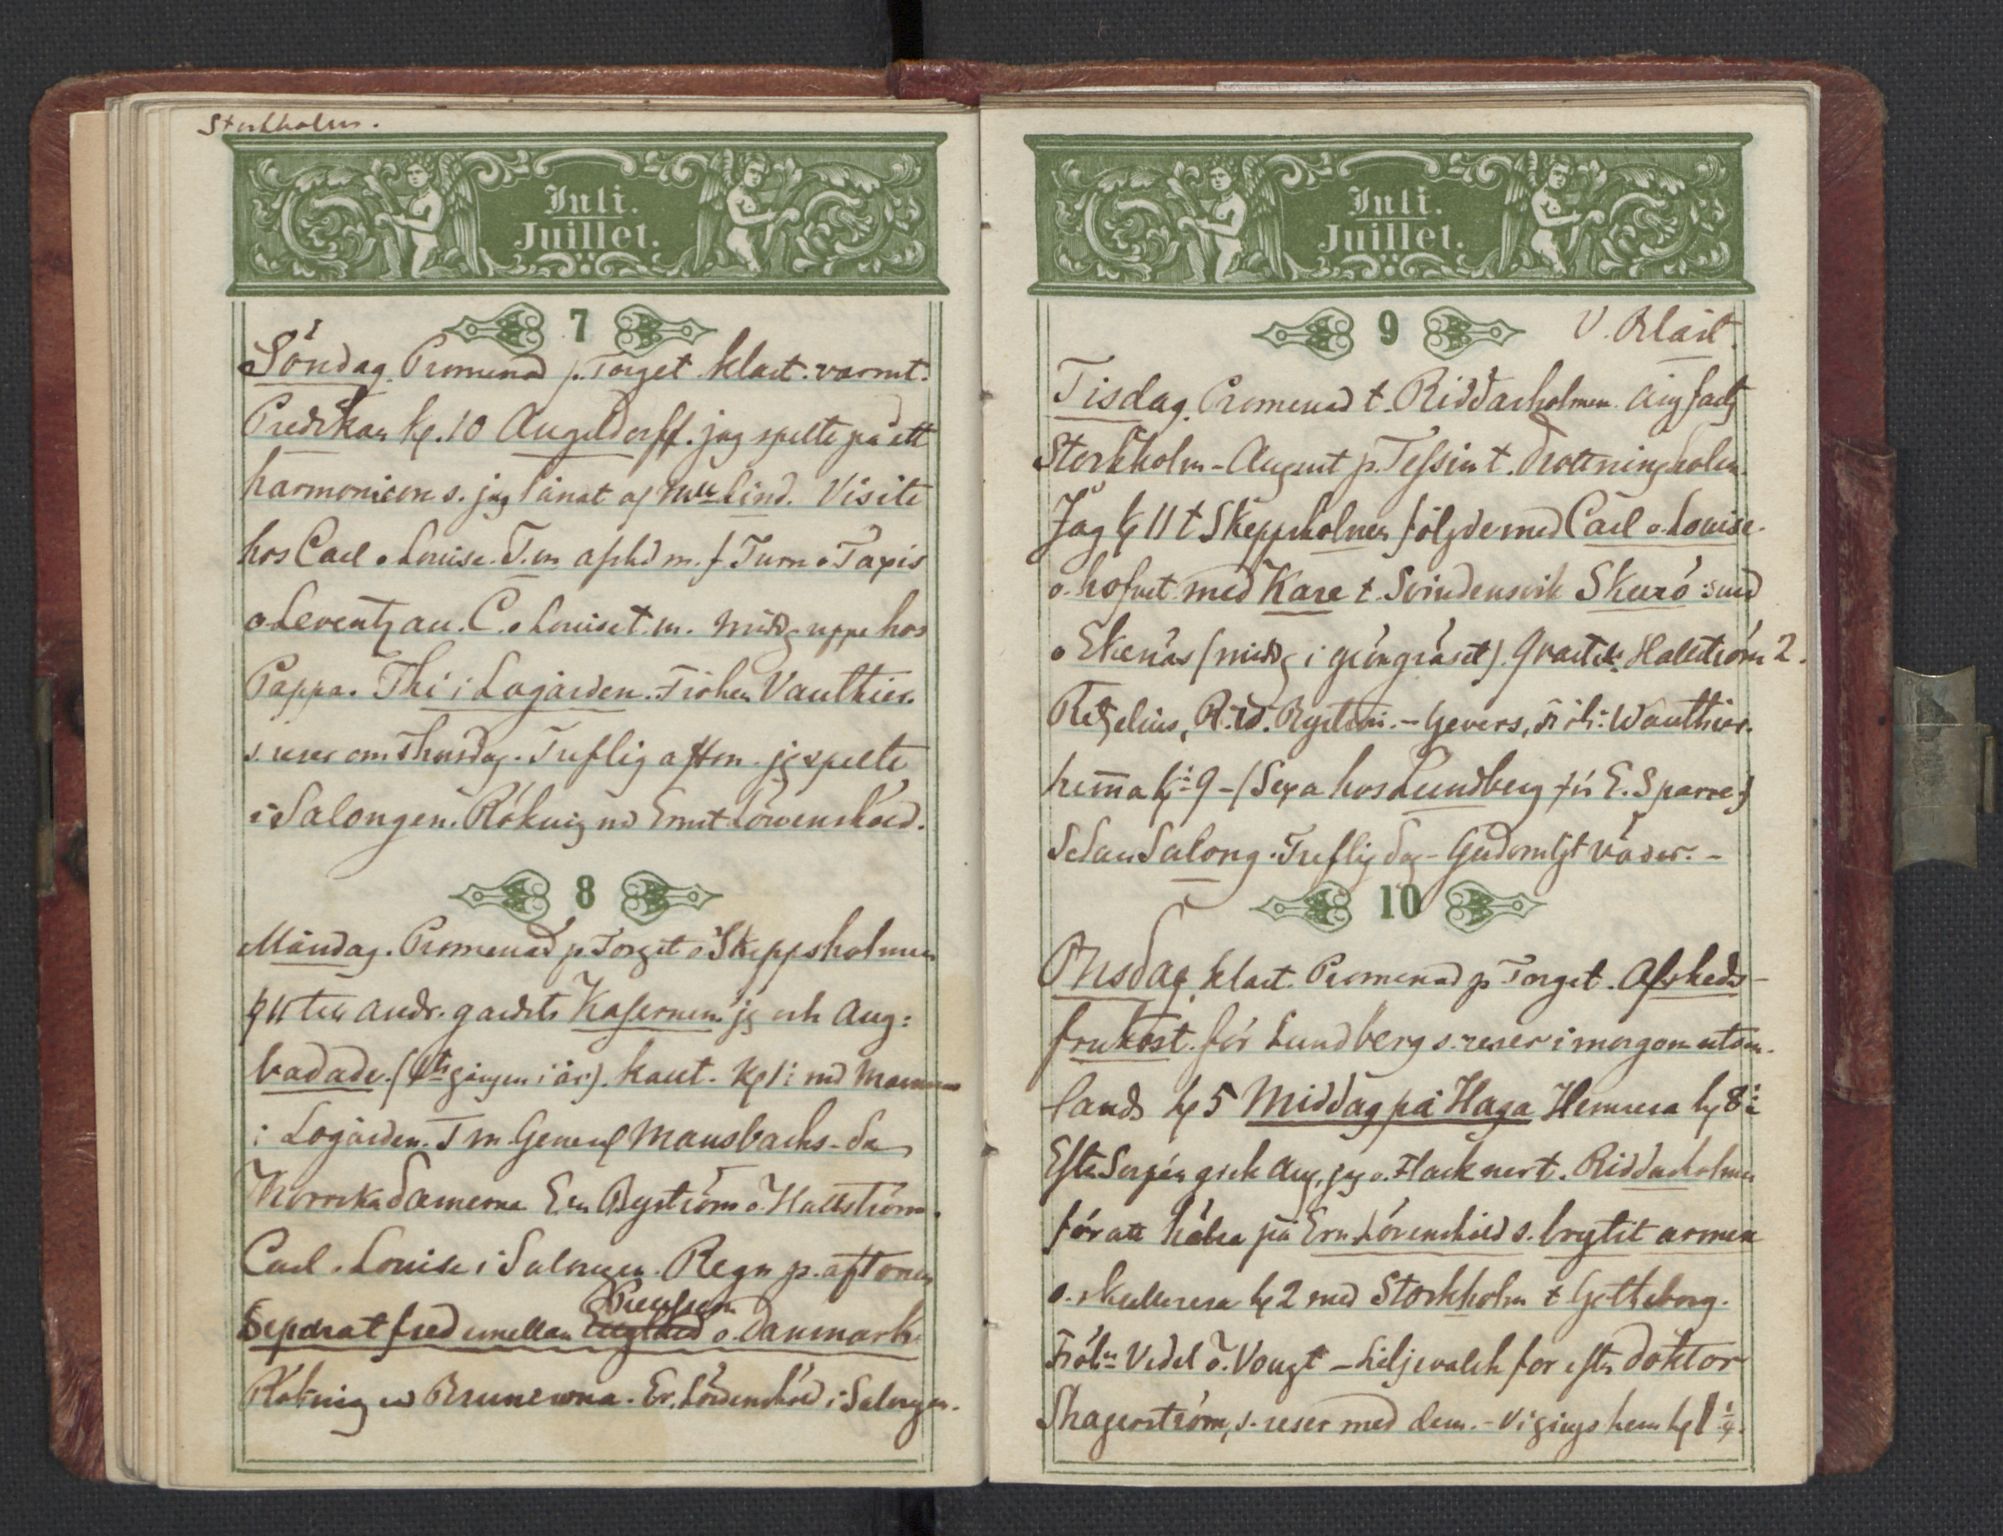 Stockholm.
Juli.
Juillet.
7
Söndag. Promenad p. Torget. klart. varmt.
Predikan kl. 10 Angeldorff. jag spelte på ett
harmonicon s. jag lånat af Mll Lind. Visite
hos Carl o Louise. T.m. afskd m. f Turn o Taxis
o Levetzau. C. o Louise t.m. midd. uppe hos
Pappa. Thé i Logården. Fröken Vauthier
s. reser om Thorsdag. Treflig afton. jg spelte
i Salongen. Rökning md Ernst Löwensköld.
8
Måndag. Promenad p. Torget o Skeppsholmen
till andr. gardets Kasernen jg och Aug:
badade. (1sta gången i år). kl 1 md Mamma
i Logården. T m General Mansbachs - Da
Norrska Damerna En Byström o Hallström.
Carl o Louise i Salongen. Regn p. aftonen
Separat fred emellan Preussen o. Danmark.
Rökning Er. Löwensköld i Salongen.
Juli.
Juillet.
9
V. Klart.
Tisdag. Promenad t. Riddarholmen. ångfartg
Stockholm - August p. Tessin t. Drottningholm.
Jag kl 11 t Skeppsholmen följde med Carl o. Louise.
o. hofvet med Kare t. Svindensvik Skurö sund
o Ekenäs (midg i gröngräset). Qvartet: Hallström 2.
Retzelius, R. Byström. - Gevers, fröki: Wauthier.
hemma kl 9 - (Sexa hos Lundberg för E. Sparre)
Sedan Salong. Treflig dag - Gudomlgt väder. -
10
Onsdag. klart. Promenad p Torget. Afskeds-
frukost. för Lundberg s. reser i morgon utom-
lands kl 5 Middag på Haga Hemresa kl 8
Efter Soupén gick Aug, jag o. Flack ner t. Riddarholmen
för att helsa på Ern Lövenskiöld s. brytit armen
o. skulle resa kl 2 med Stockholm t Götheborg.
Frökn Vedel o. Vougt - Liljevalch for efter doktor
Skagerström, s. reser med dem. - Vi gingo hem kl 1 1/4.